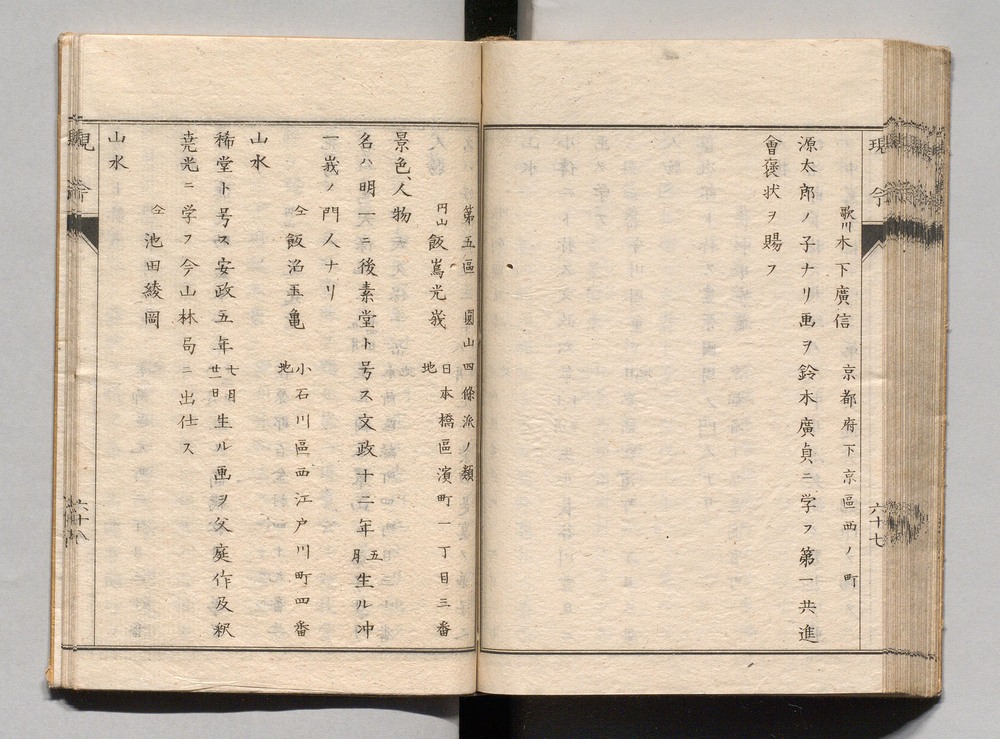 現今
歌川 木下廣信 京都府下京區西ノ町
源太郎ノ子ナリ画ヲ鈴木廣貞ニ学フ第一共進
會褒状ヲ賜フ
六十七
第五區 圓山四條派ノ類
円山 飯嶌光峩 日本橋區濱町一丁目三番
地
景色、人物
名ハ明一ニ後素堂ト号ス文政十二年五月生ル冲
一峩ノ門人ナリ
仝 飯沼玉亀 小石川區西江戸川町四番
地
山水
稀堂ト号ス安政五年七月廿一日生ル画ヲ父庭作及釈
尭光ニ学フ今山林局ニ出仕ス
仝 池田綾岡
山水
現今
六十八